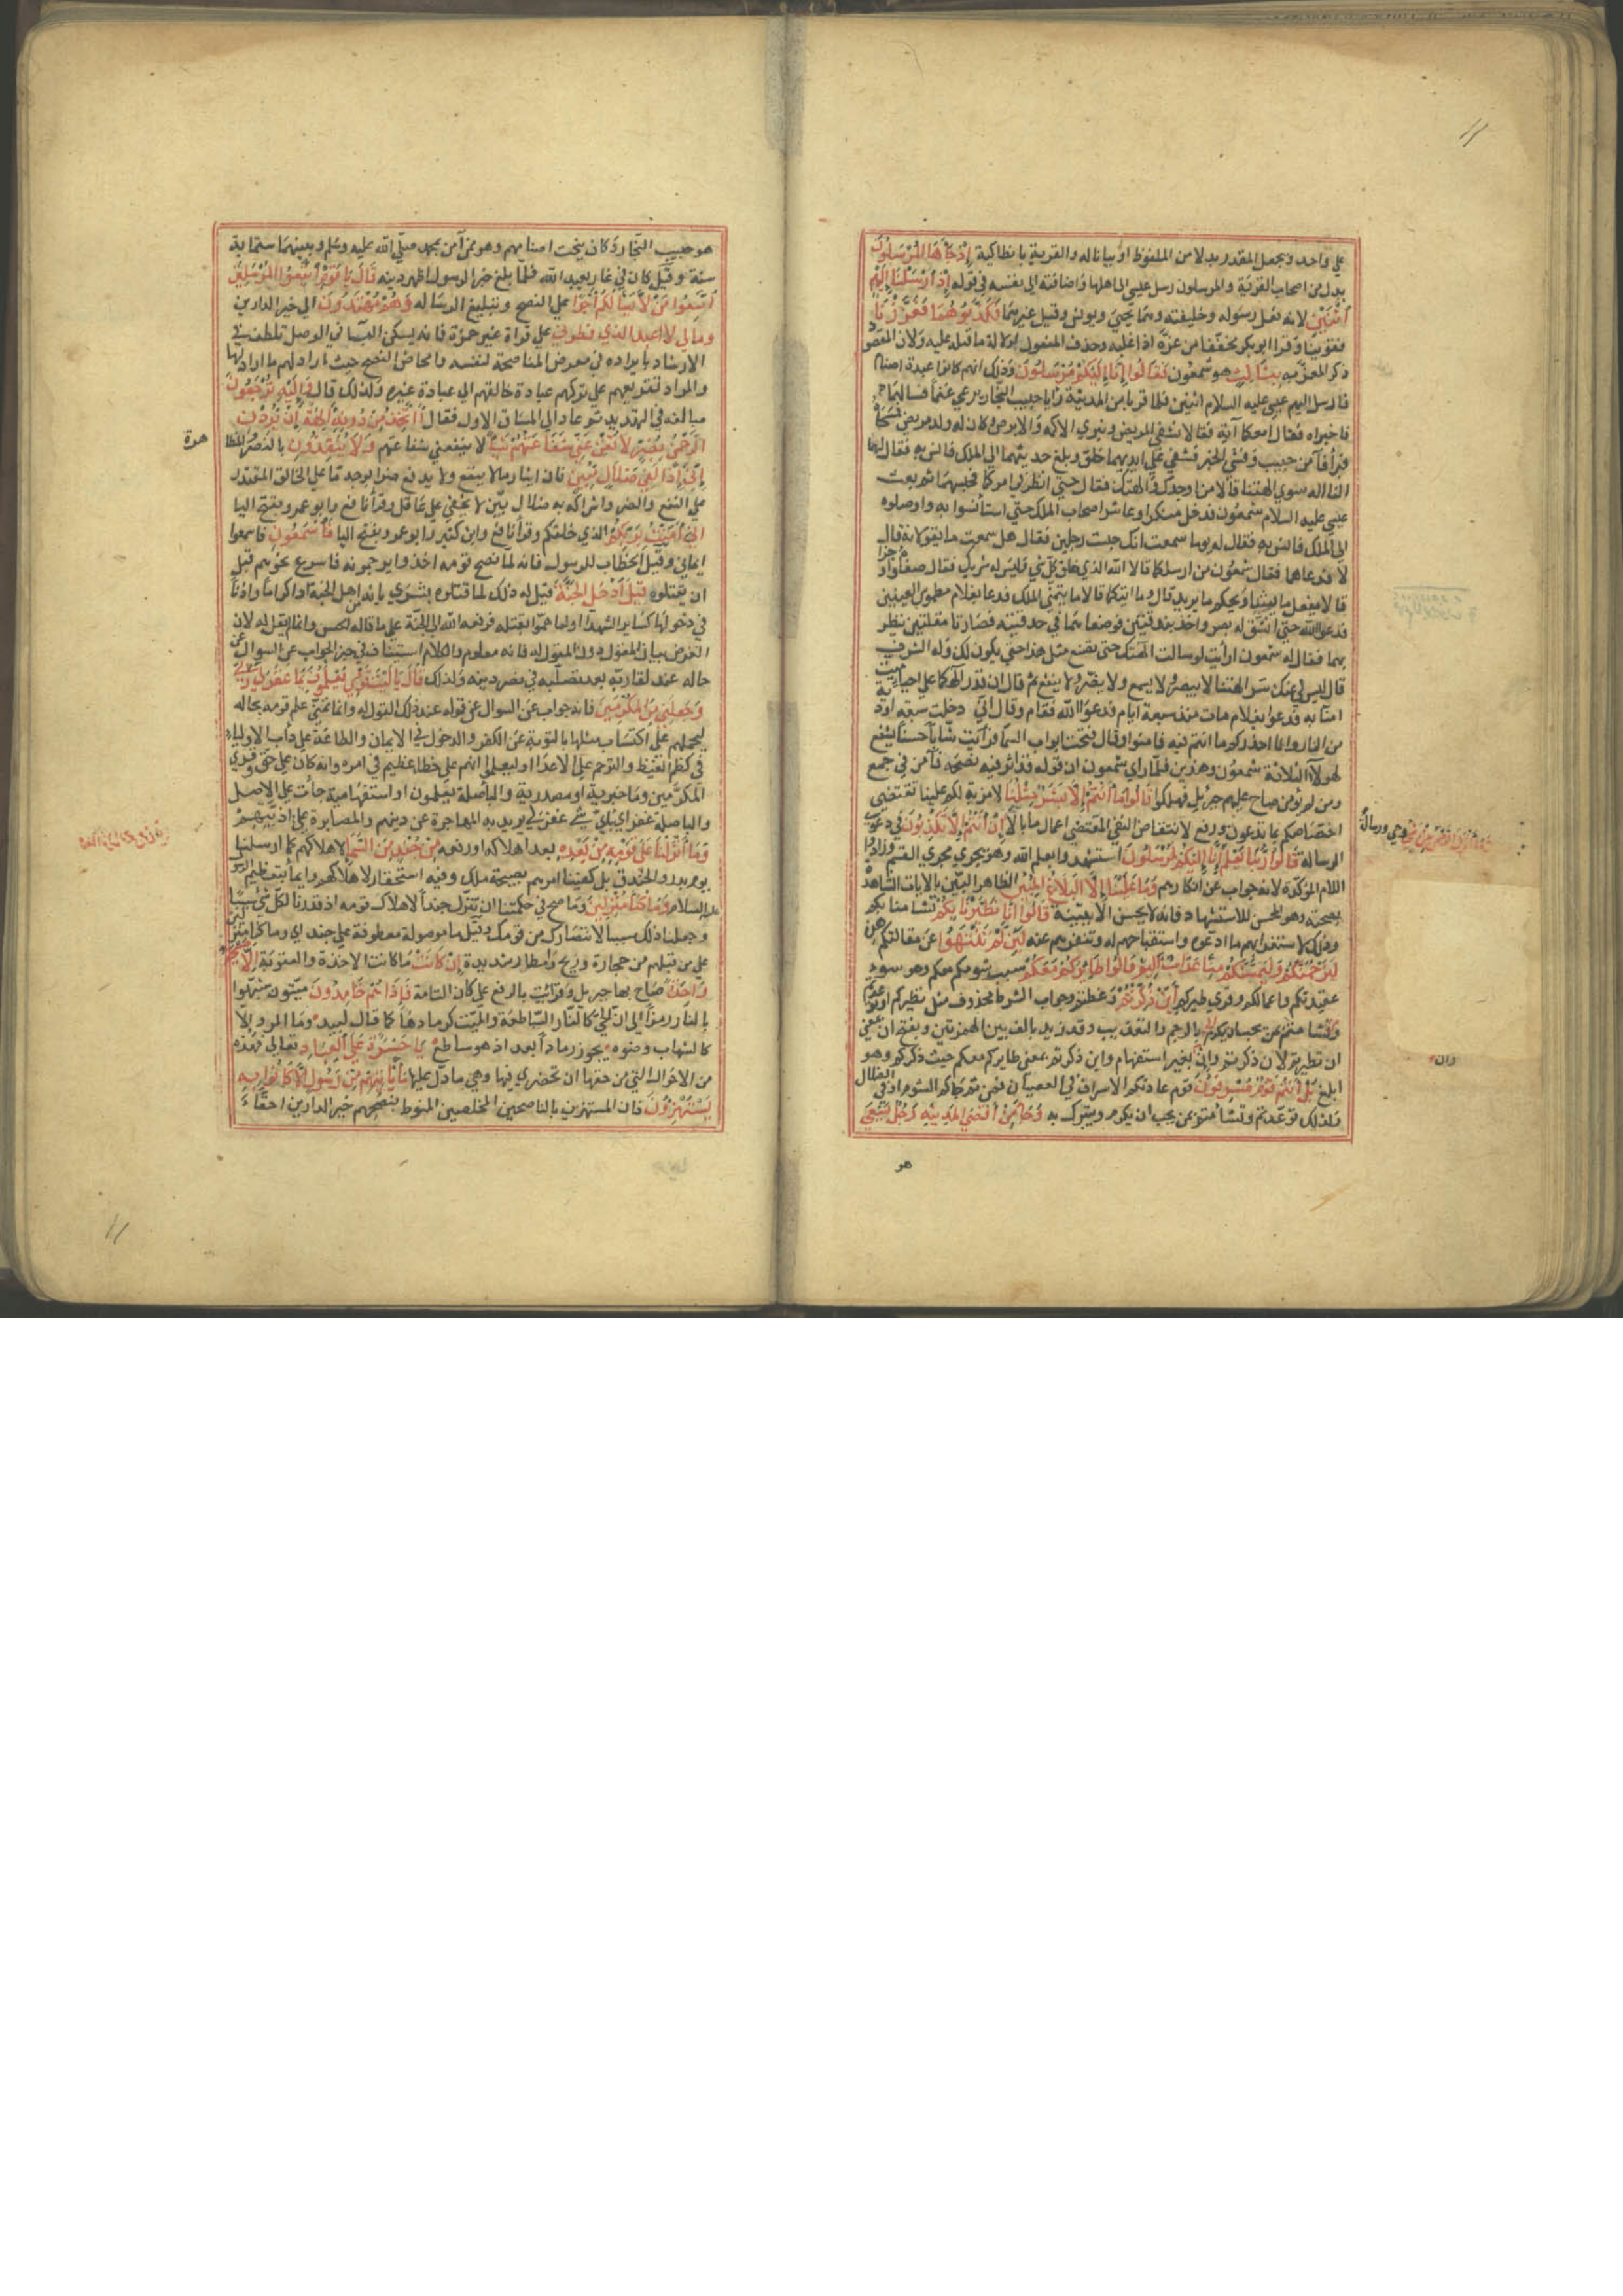 علي واحد ويجعل المقدر بدلا من الملفوظ او بيانا له والقرية بانطاكية إذ جاءها المرسلون
بدل من اصحاب القرية والمرسلون رسل عيسي الي اهلها واضافته الي نفسه في قوله إذ أرسلنا إليهم
اثنين لانه فعل رسوله وخليفته وهما يحيي ويونس وقيل غيرهما فكذبوهما فعززنا
فقوينا وقرا ابو بكر مخففا من عزه اذا غلبه وحذف المفعول لدلالة ما قبله عليه ولان المقصود
ذكر المعزز به بثالث هو شمعون فقالوا إنا إليكم مرسلون وذلك انهم كانوا عبدة اصنام
فارسل اليهم عيسي عليه السلام اثنين فلما قربا من المدينة رأيا حبيب النجار يرعي غنما فسألهما
فاخبراه فقال امعكما آية فقالا نشفي المريض ونبري الاكمه والابرص وكان له ولد مريض فمسحاه
فبرأ فآمن حبيب وفشي الخبر فشفي علي ايديهما خلق وبلغ حديثهما الي الملك فقال لهما
النا اله سوي الهتنا قالا من اوجدك والهتك فقال حتي انظر في امركما فحبسهما ثم بعث
عيسي عليه السلام شمعون فدخل متنكرا وعاشر اصحاب الملك حتي استأنسوا به واوصلوه
الي الملك فانس به فقال له يوما سمعت انك حبست رجلين فقال هل سمعت ما يقولانه قال
لا فدعاهما فقال شمعون من ارسلكما قالا الله الذي خلق كل شي وليس له شريك فقال صفاه واوجزا
قالا يفعل ما يشا ويحكم ما يريد قال وما ايتكما قالا ما يتمني الملك فدعا بغلام مطموس العينين
فدعوا الله حتي انشق له بصر واخذ بندقتين فوضعاهما في حدقتيه فصارتا مقلتين ينظر
بهما فقال له شمعون ارأيت لو سالت الهتك حتي تصنع مثل هذا حتي يكون لك وله الشرف
قال ليس لي عنك سر الهتنا لا يبصر ولا يسمع ولا يضر ولا ينفع ثم قال ان قدر الهكما علي احياء ميت
امنا به فدعوا بغلام مات منذ سبعة ايام فدعوا الله فقام وقال اني دخلت سبعة اودية
من النار وانا احذركم ما انتم فيه فامنوا وقال فتحت ابواب السما فرأيت شابا حسنا يشفع
لهولاء الثلاثة شمعون وهذين فلما راي شمعون ان قوله قد اثر فيه نصحه فآمن في جمع
ومن لم يؤمن صاح عليهم جبريل فهلكوا قالوا ما أنتم إلا بشر مثلنا لا مزية لكم علينا تقتضي
اختصاصكم بما تدعون ورفع لانتقاض النفي المقتضي اعمال ما بالا إن أنتم إلا تكذبون في دعوي
الرسالة قالوا ربنا يعلم إنا إليكم لمرسلون استشهدوا بعلم الله وهو يجري مجري القسم وزادوا
اللام المؤكدة لانه جواب عن انكارهم وما علينا إلا البلاغ المبين الظاهر البين بالايات الشاهدة
بصحته وهو المحسن للاستشهاد فانه لا يحسن الا ببينة قالوا إنا تطيرنا بكم تشامنا بكم
وذلك لاستغرابهم ما ادعوه واستقباحهم له وتنفرهم عنه لئن لم تنتهوا عن مقالتكم هذه
لنرجمنكم وليمسنكم منا عذاب أليم قالوا طائركم معكم سبب شومكم معكم وهو سوء
عقيدتكم واعمالكم وقري طيركم أئن ذكرتم وعظتم وجواب الشرط محذوف مثل تطيرتم او توعدتم
ان تطيرتم لان ذكرتم وان بغير استفهام واين ذكرتم بمعني طايركم معكم حيث ذكركم وهو
ابلغ بل أنتم قوم مسرفون قوم عادتكم الاسراف في العصيان فمن ثم جاكم الشوم او في الضلال
ولذلك توعدتم وتشامتم بمن يجب ان يكرم ويتبرك به وجاء من أقصى المدينة رجل يسعى
هو
وما أنزل الرحمن من شي وحي ورسالة
وان
هو حبيب النجار وكان ينحت اصنامهم وهو ممن آمن بمحمد صلي الله عليه وسلم وبينهما ستماية
سنة وقيل كان في غار يعبد الله فلما بلغه خبر الرسول اظهر دينه قال يا قوم اتبعوا المرسلين
اتبعوا من لا يسألكم أجرا علي النصح وتبليغ الرسالة وهم مهتدون الي خير الدارين
ومالي لا أعبد الذي فطرني علي قراة غير حمزة فانه يسكن اليا في الوصل تلطف في
الارشاد بايراده في معرض المناصحة لنفسه وامحاض النصح حيث اراد لهم ما اراد لها
والمراد تقريعهم علي تركهم عبادة خالقهم الي عبادة غيره ولذلك قال وإليه ترجعون
مبالغة في التهديد ثم عاد الي المساق الاول فقال أأتخذ من دونه آلهة إن يردن
الرحمن بضر لا تغن عني شفاعتهم شيئا لا ينفعني شفاعتهم ولا ينقذون بالنصرة والمظا
هرة
إني إذا لفي ضلال مبين فان ايثار ما لا ينفع ولا يدفع ضرا بوجه ما علي الخالق المقتدر
علي النفع والضر واشراكه به ضلال بين لا يخفي علي عاقل وقرأ نافع وابو عمرو بفتح اليا
إني آمنت بربكم الذي خلقكم وقرأ نافع وابن كثير وابو عمرو بفتح اليا فاسمعون فاسمعوا
ايماني وقيل الخطاب للرسول فانه لما نصح قومه اخذوا يرجمونه فاسرع نحوهم قبل
ان يقتلوه قيل ادخل الجنة قيل له ذلك لما قتلوه بشري بانه من اهل الجنة او اكراما واذنا
في دخولها كساير الشهدا او لما هموا بقتله فرفعه الله الي الجنة علي ما قاله الحسن وانما لم يقل له لان
الغرض بيان المقول دون المقول له فانه معلوم والكلام استيناف في حيز الجواب عن السوال عن
حاله عند لقا ربه بعد تصلبه في نصر دينه ولذلك قال يا ليت قومي يعلمون بما غفر لي ربي
وجعلني من المكرمين فانه جواب عن السوال عن قوله عند ذلك القول له وانما تمني علم قومه بحاله
ليحملهم علي اكتساب مثلها بالتوبة عن الكفر والدخول في الايمان والطاعة علي دأب الاولياء
في كظم الغيظ والترحم علي الاعدا او ليعلموا انهم علي خطا عظيم في امره وانه كان علي حق وقري
المكرمين وما خبرية او مصدرية والبا صلة يعلمون او استفهامية جاءت علي الاصل
والبا صلة غفر اي باي شي غفر لي يريد به المهاجرة عن دينهم والمصابرة علي اذيتهم
وما أنزلنا على قومه من بعده بعد اهلاكه او رفعه من جند من السماء لاهلاكهم كما ارسلنا
يوم بدر والخندق بل كفينا امرهم بصيحة ملك وفيه استحقار لاهلاكهم وايما بتعظيم الرسول
عليه السلام وما كنا منزلين وما صح في حكمتنا ان ننزل جندا لاهلاك قومه اذ قدرنا لكل شي سببا
وجعلنا ذلك سببا لانتصارك من قومك وقيل ما موصولة معطوفة علي جند اي وما كنا منزلين
علي من قبلهم من حجارة وريح وامطار شديدة إن كانت ما كانت الاخذة والعقوبة إلا صيحة
واحدة صاح بها جبريل وقرئت بالرفع علي كان التامة فإذا هم خامدون ميتون شبهوا
بالنار رمزا الي ان الحي كالنار الساطعة والميت كرمادها كما قال لبيد وما المرو الا
كالشهاب وضوه يجوز رمادا بعد اذ هو ساطع يا حسرة على العباد تعالي فهذه
من الاحوال التي من حقها ان تحضري فيها وهي ما دل عليها ما يأتيهم من رسول إلا كانوا به
يستهزؤن فان المستهزين بالناصحين المخلصين المنوط بنصحهم خير الدارين احقاء